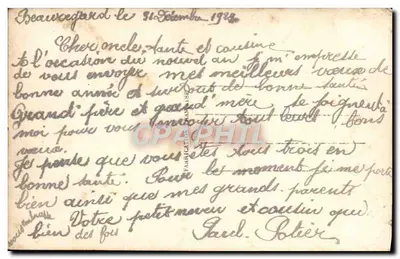 Beauregard le 31 Décembre 192
Cher oncle, tante et cousine
A l'occasion du nouvel an je m'empresse
de vous envoyer mes meilleurs vœux de
bonne année et surtout de bonne santé
Grand père et grand' mère, se joignent à
moi pour vous envoyer tout leurs bons
vœux.
Je pense que vous êtes tous trois en
bonne santé. Pour le moment je me porte
bien ainsi que mes grands-parents
Votre petit neveu et cousin qui
vous embrasse
bien des fois
Paul Potier
CARTPHILIA